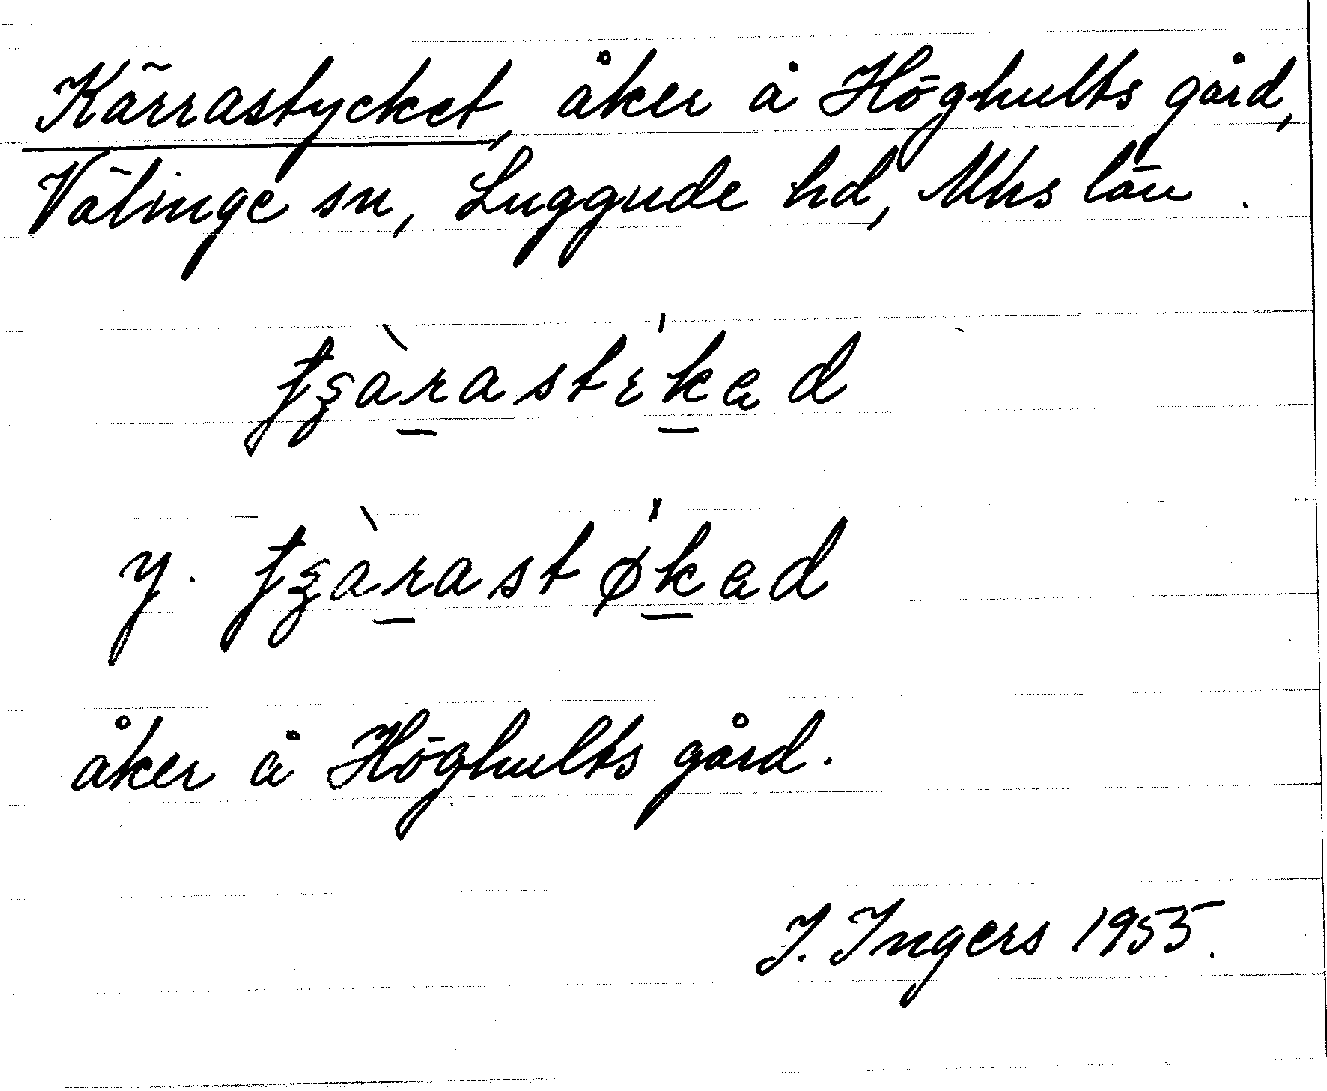 Kärrastycket, åker å Höghults gård,
Välinge sn, Luggude hd, Mhs län.
ƭʒàrastɛ́kəd
y. ƭʒàrastǿkəd
åker å Höghults gård.
I. Ingers 1955.